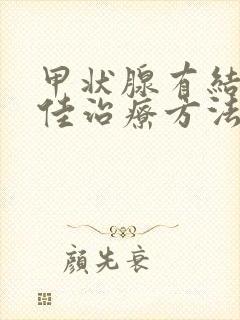 甲状腺有結
佳治療方法
顔先衰